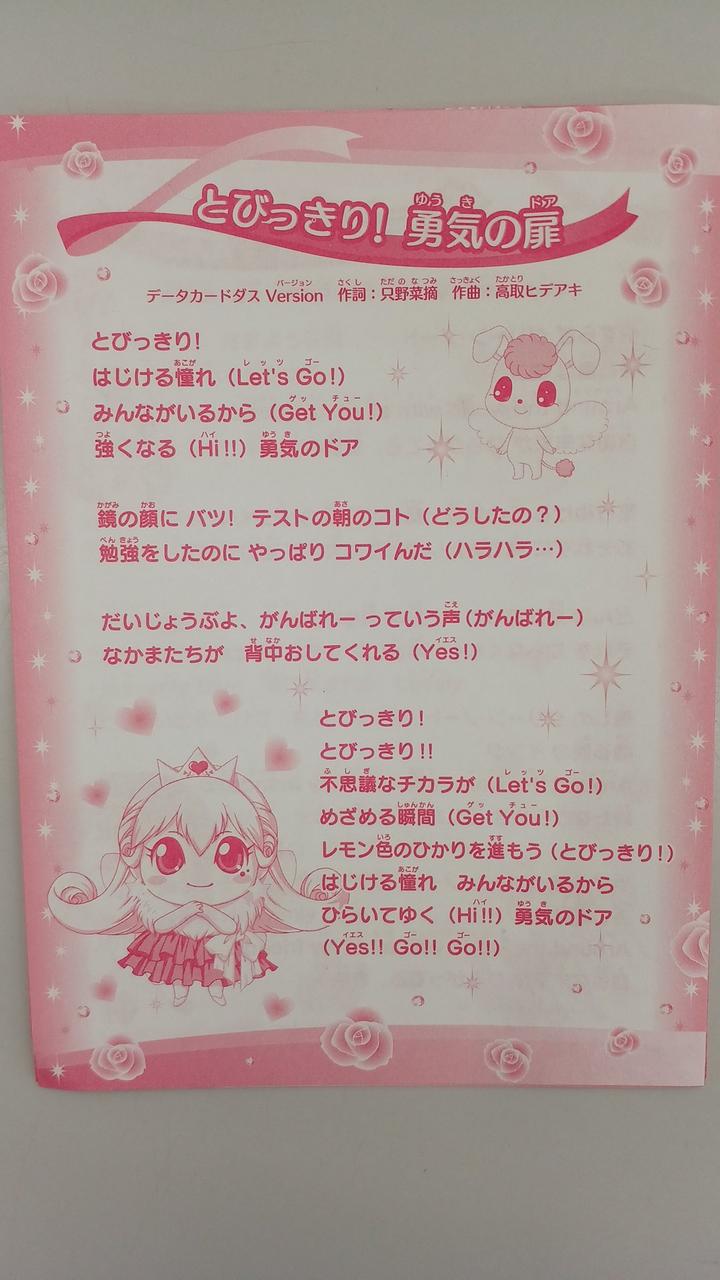 とびっきり! 勇気の扉
データカードダス Version 作詞：只野菜摘 作曲：高取ヒデアキ
とびっきり!
はじける憧れ（Let's Go!）
みんながいるから（Get You!）
強くなる（Hi!!）勇気のドア
鏡の顔に バツ! テストの朝のコト（どうしたの？）
勉強をしたのに やっぱり コワイんだ（ハラハラ…）
だいじょうぶよ、がんばれー っていう声（がんばれー）
なかまたちが 背中おしてくれる（Yes!）
とびっきり!
とびっきり!!
不思議なチカラが（Let's Go!）
めざめる瞬間（Get You!）
レモン色のひかりを進もう（とびっきり!）
はじける憧れ みんながいるから
ひらいてゆく（Hi!!）勇気のドア
（Yes!! Go!! Go!!）